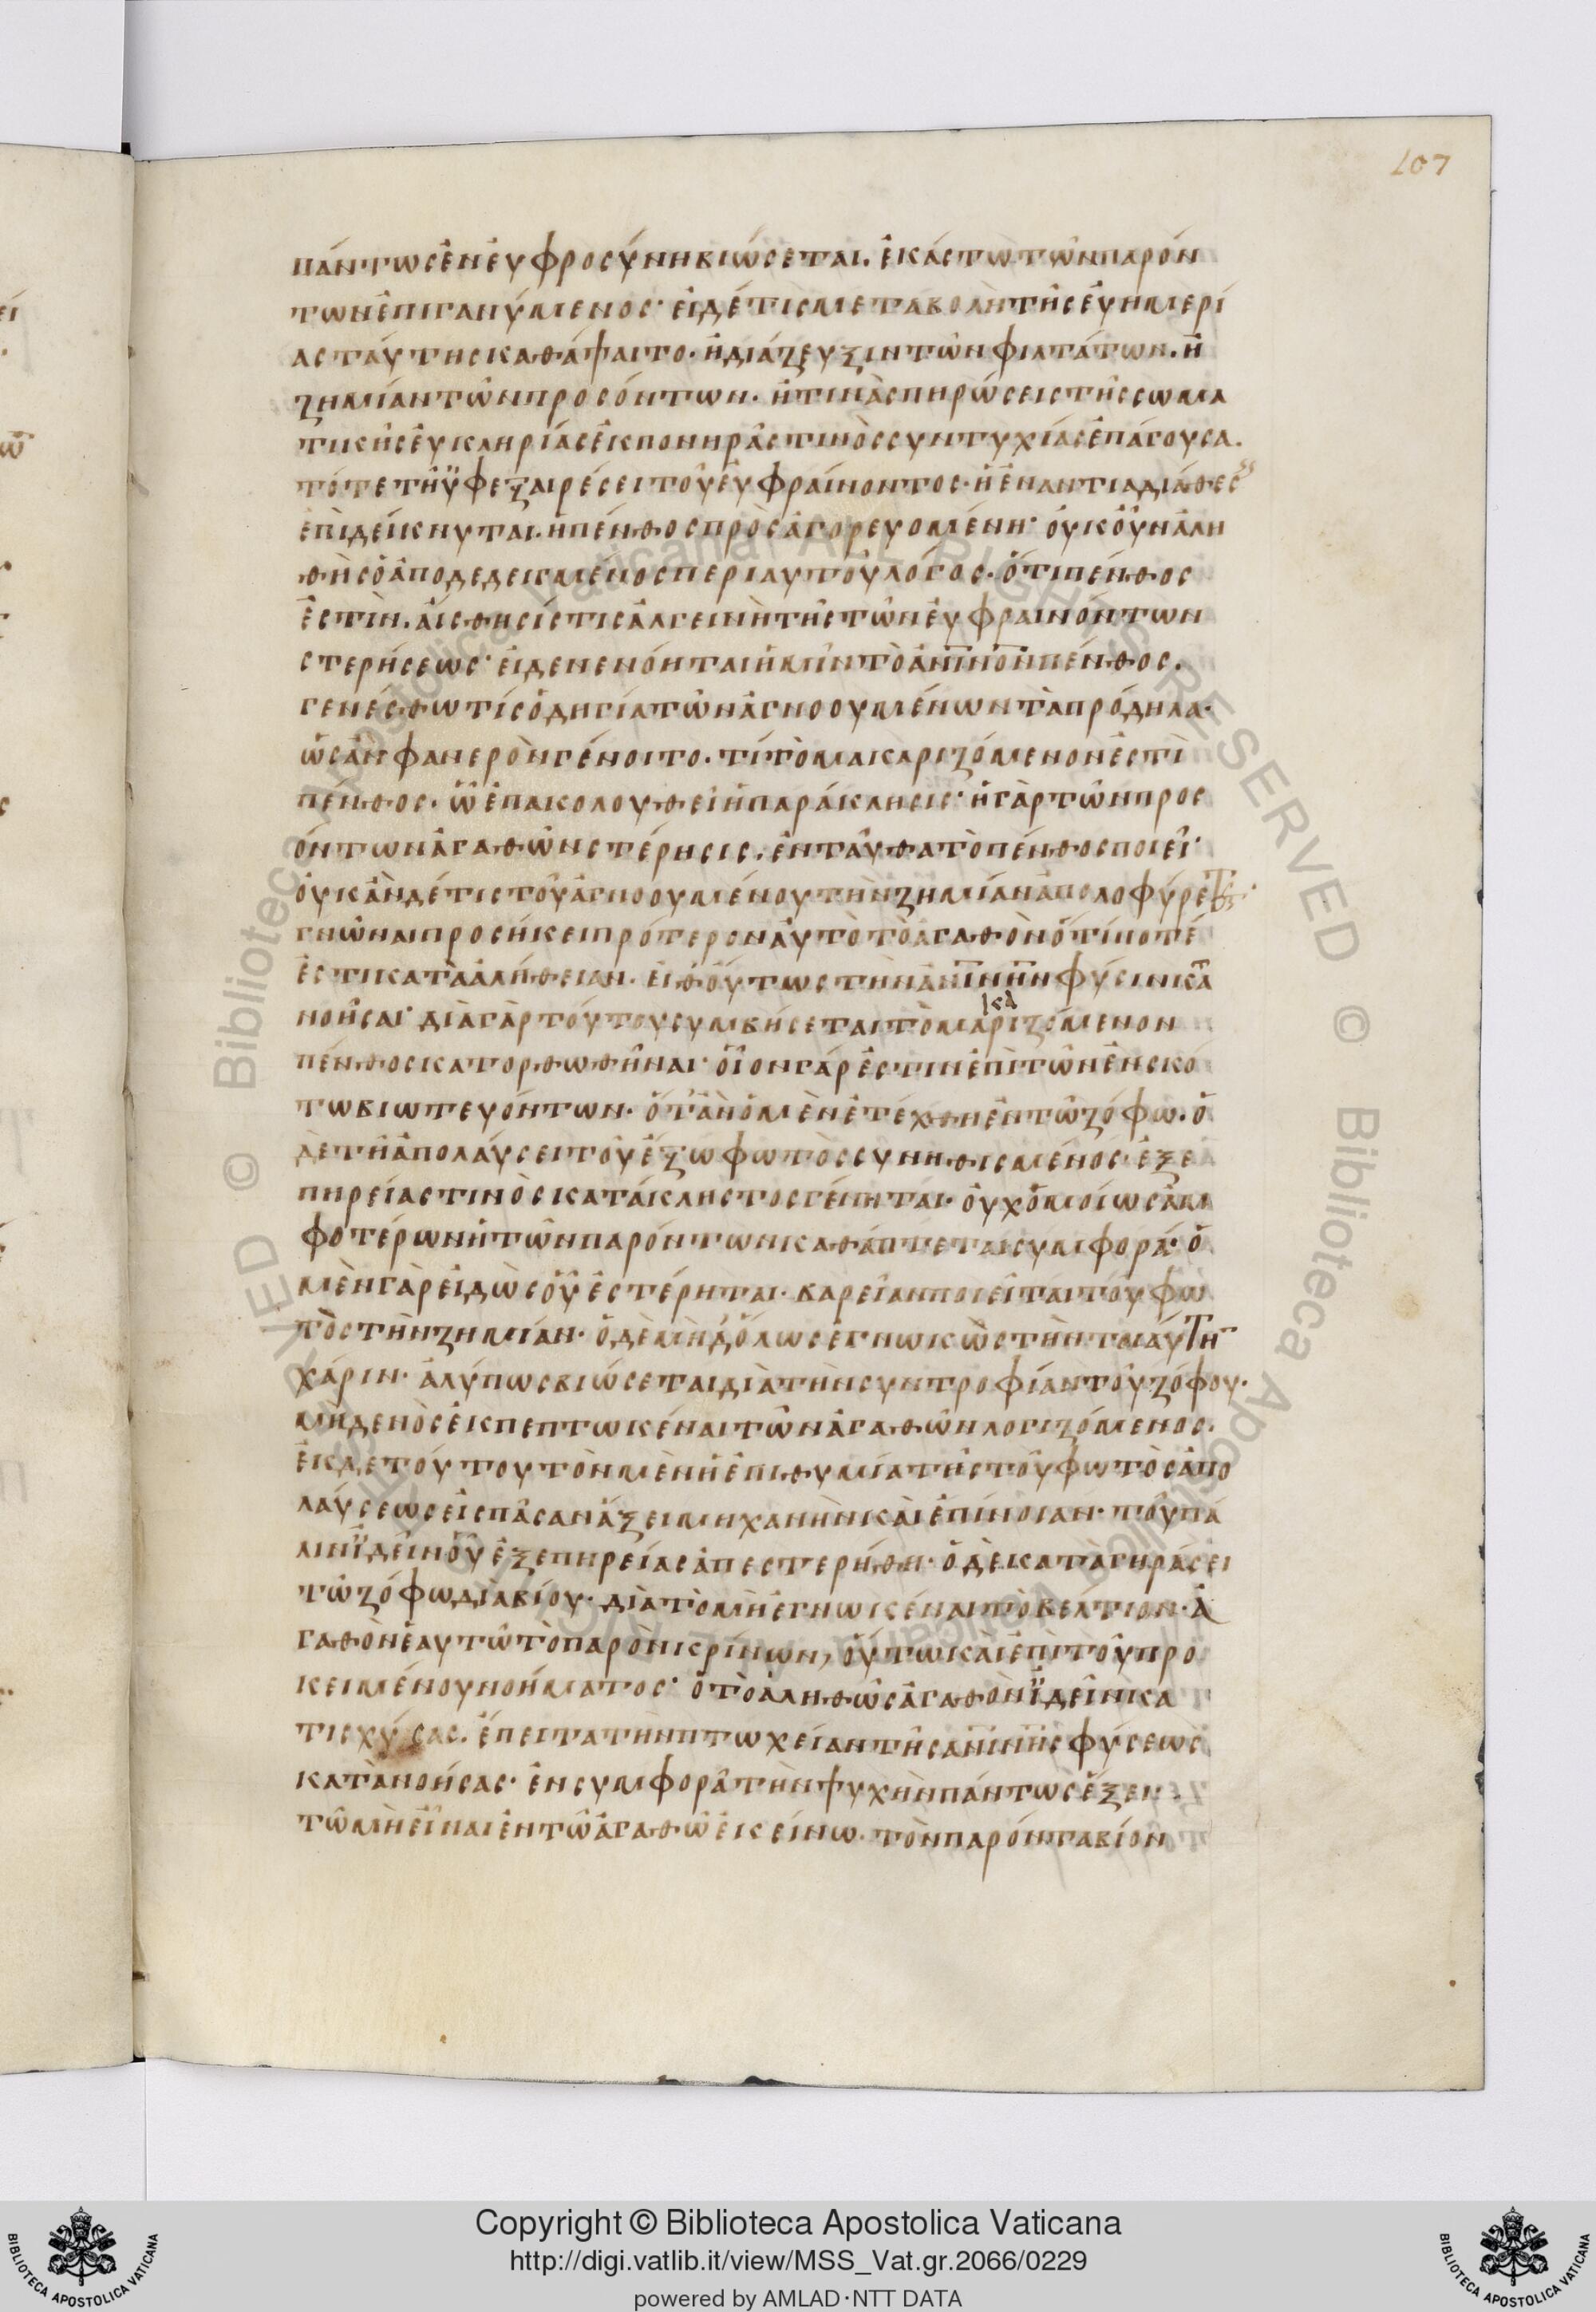 107
πάντως ἐν εὐφροσύνη βιώσεται. ἑκάστω τῶν παρόν
των ἐπιγανύμενος· εἰ δέ τις μεταβολὴ τῆς εὐημερί
ας ταύτης καθάψαιτο. ἢ διάζευξιν τῶν φιλτάτων. ἢ
ζημίαν τῶν προσόντων. ἤ τινὰς πηρώσεις τῆς σωμα
τικῆς εὐκληρίας ἐκ πονηρᾶς τινὸς συντυχίας ἐπάγουσα.
τότε τῆ ὑφεξαιρέσει τοῦ εὐφραίνοντος. ἡ ἐναντία διάθες
ἐπιδείκνυται. ἡ πένθος προσαγορευομένη· οὐκοῦν ἀλη
θὴς ὁ ἀποδεδειγμένος περὶ αυτοῦ λόγος. ὅτι πένθος
ἐστὶν. αἴσθησίς τις ἀλγεινὴ τῆς τῶν εὐφραινόντων
στερήσεως· εἰ δε νενόηται ἡμῖν τὸ ἀνινον πένθος.
γενέσθω τίς ὁδηγία τῶν ἀγνοουμένων τὰ πρόδηλα·
ὡς ἂν φανερὸν γένοιτο. τί τὸ μακαριζόμενον ἐστὶ
πένθος. ὧ ἐπακολουθεῖ ἡ παράκλησις· ἡ γὰρ τῶν προσ
όντων ἀγαθῶν στέρησις. ἐνταῦθα τὸ πένθος ποιεῖ·
οὐκ ἂν δέ τις τοῦ ἀγνοουμένου τὴν ζημίαν ἀπολοφύρετο·
γνῶναι προσήκει πρότερον αὐτὸ τὸ ἀγαθὸν ὅτί ποτέ
ἐστι κατὰ ἀλήθειαν. εἶθ οὕτως τὴν ἀνινην φύσιν κατα
νοῆσαι· διὰ γὰρ τούτου συμβήσεται τὸ μακαριζόμενον
πένθος κατορθωθῆναι· οἷον γάρ ἐστιν ἐπὶ τῶν ἐν σκό
τω βιωτευόντων. ὅτ ἂν ὁ μὲν ἐτέχθη ἐν τῶ ζόφω. ὁ
δε τῆ ἀπολαύσει τοῦ ἔξω φωτὸς συνηθισμένος. ἐξ ἐ
πηρείας τινὸς κατάκλειστος γένηται. οὐχ ὁμοίως ἀμ
φοτέρων ἡ τῶν παρόντων καθάπτεται συμφορά· ὁ
μὲν γὰρ εἰδὼς οὗ ἐστέρηται. βαρεῖαν ποιεῖται τοῦ φω
τὸς τὴν ζημίαν. ὁ δὲ μὴδ ὅλως ἐγνωκὼς τὴν τοιαύτην
χάριν. ἀλύπως βιώσεται διὰ τὴν συντροφίαν τοῦ ζόφου.
μηδενὸς ἐκπεπτωκέναι τῶν ἀγαθῶν λογιζόμενος.
ἐκ δε τούτου τὸν μὲν ἡ ἐπιθυμία τῆς τοῦ φωτὸς ἀπο
λαύσεως εἰς πᾶσαν ἄξει μηχανὴν καὶ ἐπίνοιαν· τοῦ πά
λιν ἰδεῖν οὗ ἐξ επηρείας ἀπεστερήθη. ὁ δὲ καταγηράσει
τῶ ζόφω διὰ βίου. διὰ τὸ μὴ ἐγνωκέναι τὸ βέλτιον. ἀ
γαθὸν ἑαυτῶ τὸ παρὸν κρίνων, οὕτω καὶ ἐπὶ τοῦ προ
κειμένου νοήματος· ὁ τὸ ἀληθῶς ἀγαθὸν ἰδεῖν κα
τισχύσας. ἔπειτα τὴν πτωχείαν τῆς ἀνινης φύσεως
κατανοήσας· ἐν συμφορᾶ τὴν ψυχὴν πάντως ἕξει
τῶ μὴ εἶναι ἐν τῶ ἀγαθῶ ἐκείνω. τὸν παρόντα βίον
Copyright © Biblioteca Apostolica Vaticana
http://digi.vatlib.it/view/MSS_Vat.gr.2066/0229
powered by AMLAD·NTT DATA
BIBLIOTECA APOSTOLICA VATICANA
BIBLIOTECA APOSTOLICA VATICANA